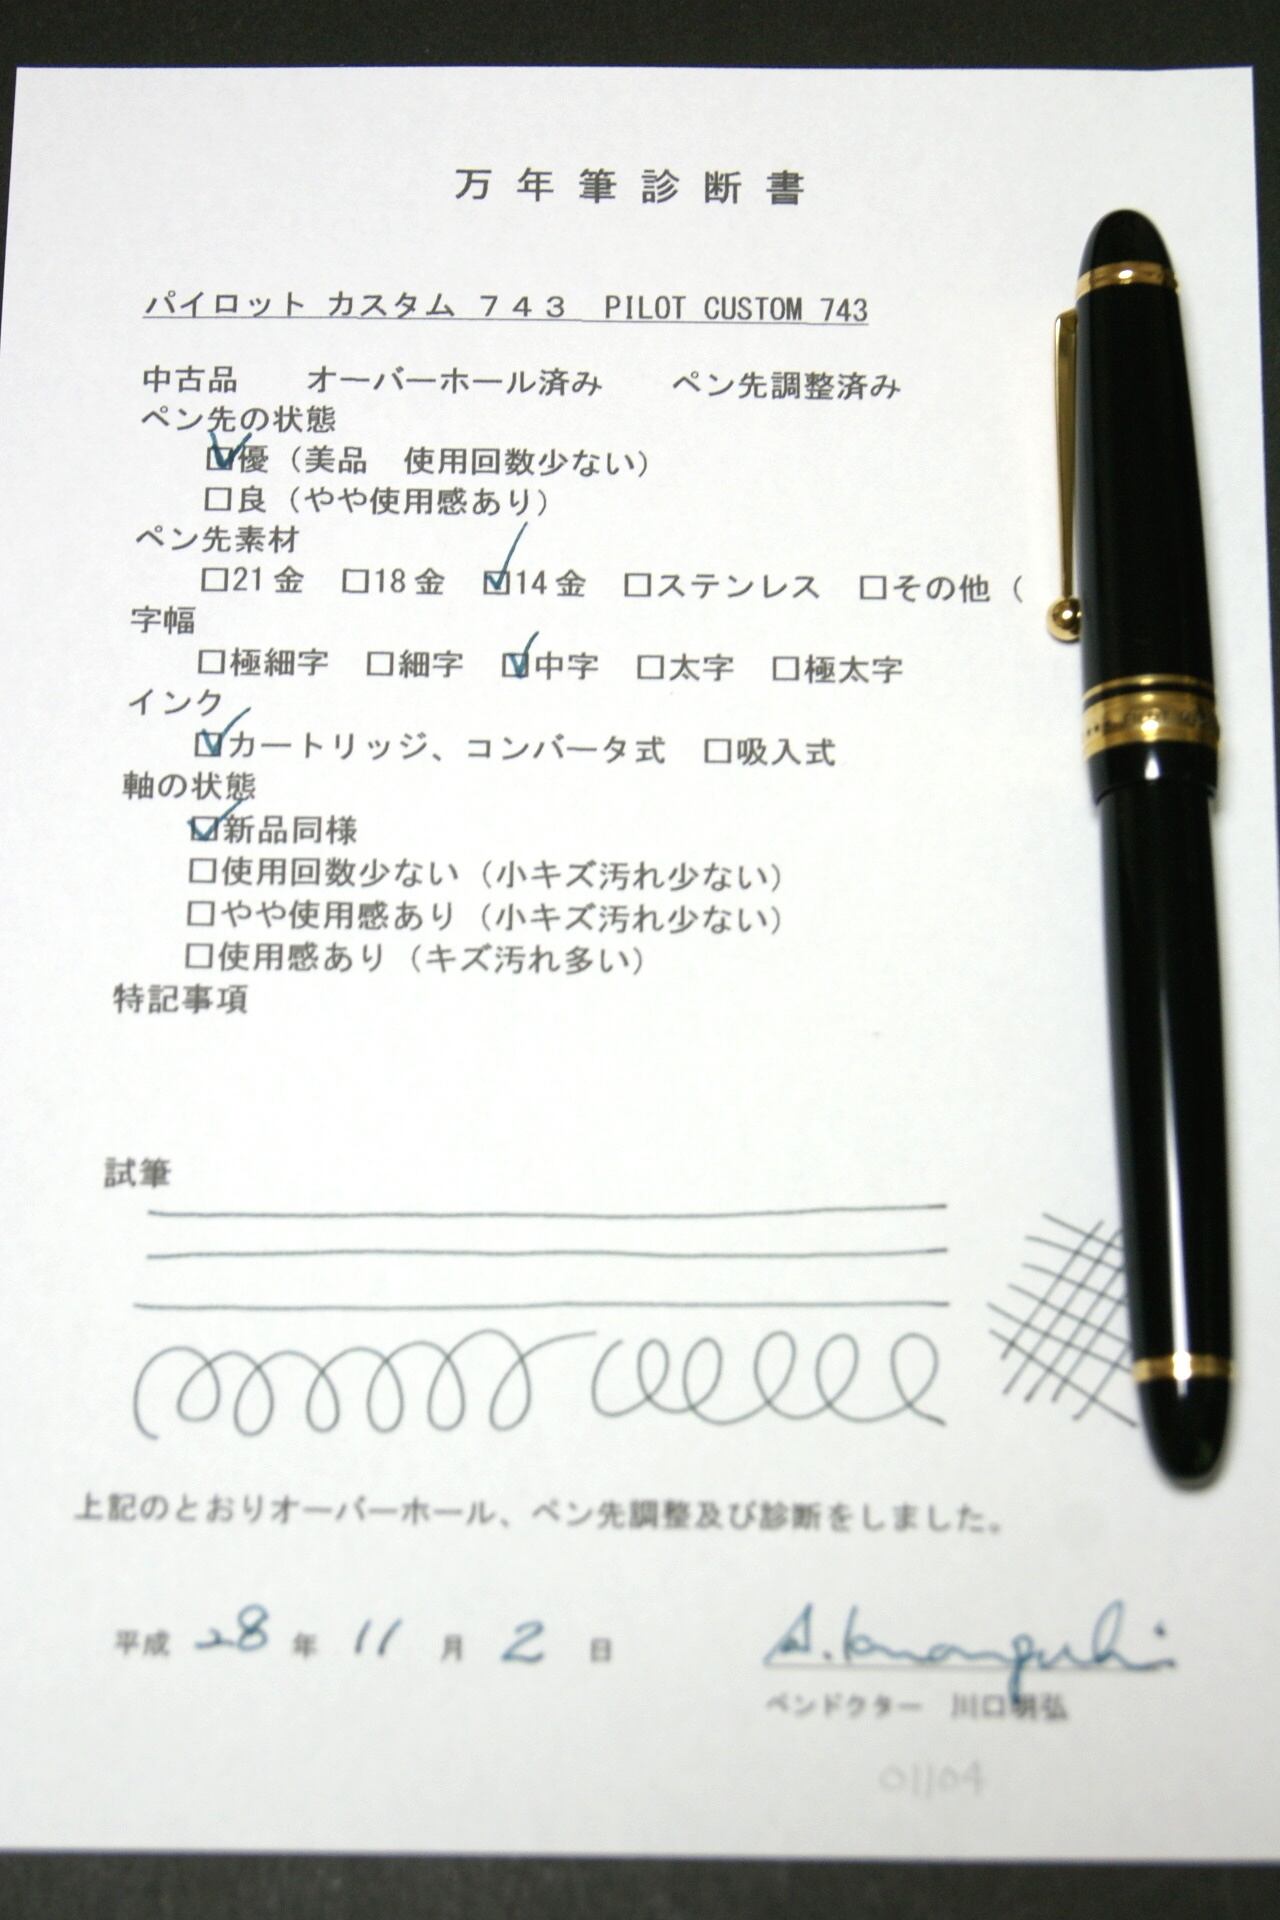 万年筆診断書
パイロット カスタム ７４３ PILOT CUSTOM 743
中古品 オーバーホール済み ペン先調整済み
ペン先の状態
☑優（美品 使用回数少ない）
□良（やや使用感あり）
ペン先素材
□21金 □18金 ☑14金 □ステンレス □その他（
字幅
□極細字 □細字 ☑中字 □太字 □極太字
インク
☑カートリッジ、コンバータ式 □吸入式
軸の状態
☑新品同様
□使用回数少ない（小キズ汚れ少ない）
□やや使用感あり（小キズ汚れ少ない）
□使用感あり（キズ汚れ多い）
特記事項
試筆
上記のとおりオーバーホール、ペン先調整及び診断をしました。
平成 28 年 11 月 2 日
ペンドクター 川口明弘
01104